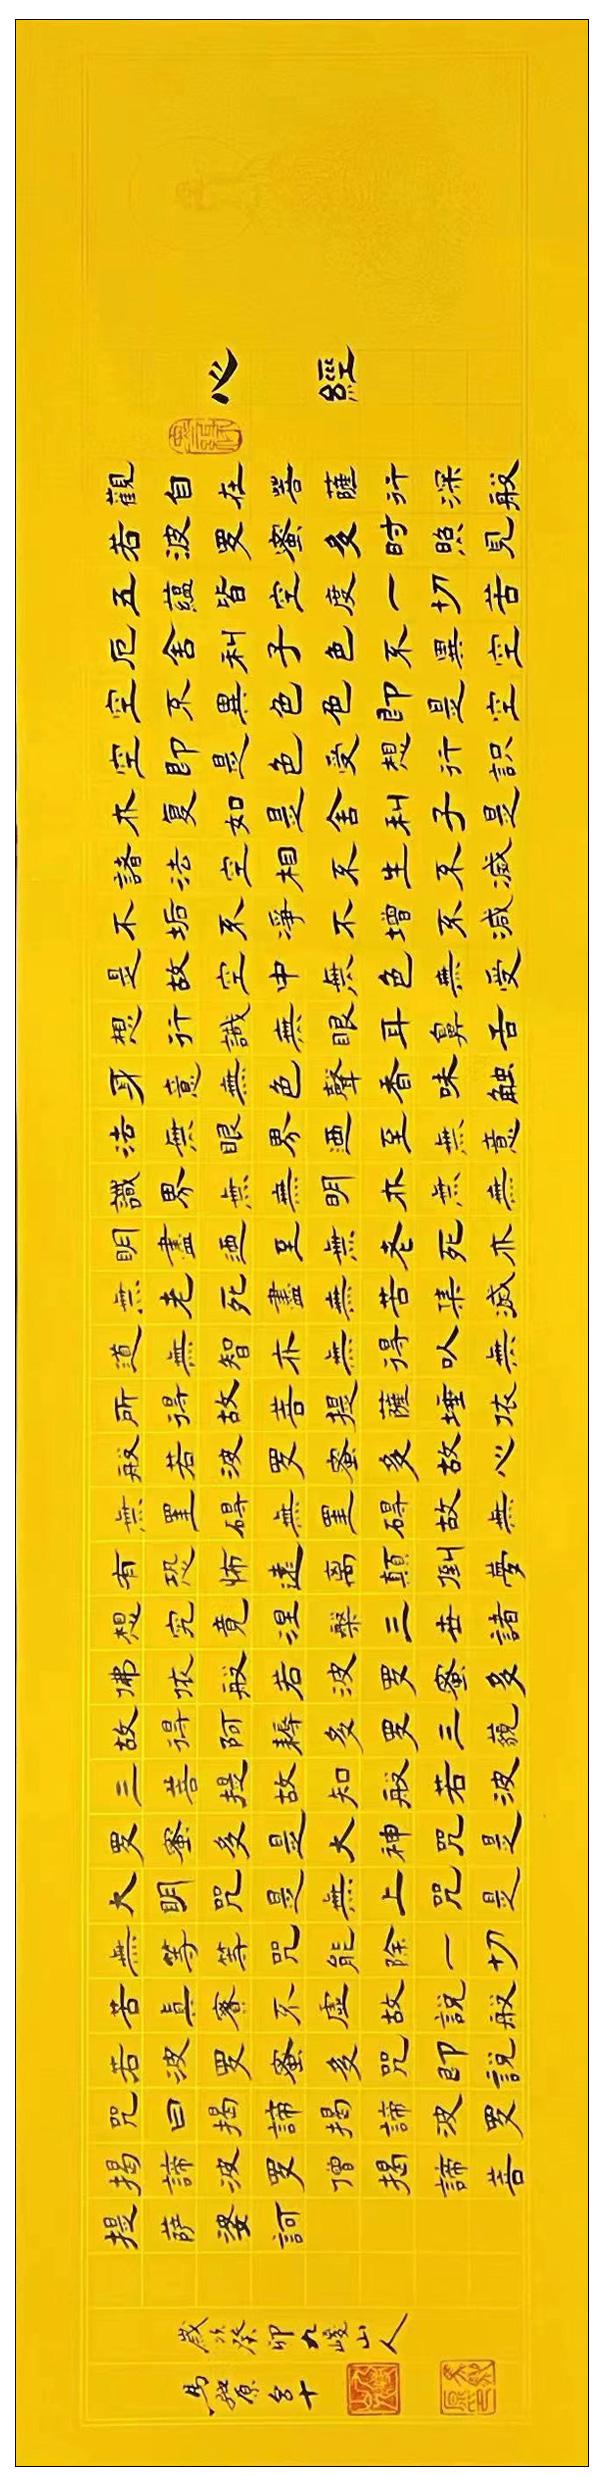 心經
觀自在菩薩行深般
若波罗蜜多时照見
五蘊皆空度一切苦
厄舍利子色不異空
空不異色色即是空
空即是色受想行識
亦复如是舍利子是
諸法空相不生不滅
不垢不淨不增不減
是故空中無色無受
想行識無眼耳鼻舌
身意無色聲香味触
法無眼界迺至無意
識界無無明亦無無
明盡迺至無老死亦
無老死盡無苦集滅
道無智亦無得以無
所得故菩提薩埵依
般若波罗蜜多故心
無罣碍無罣碍故無
有恐怖遠离顛倒夢
想究竟涅槃三世諸
佛依般若波罗蜜多
故得阿耨多罗三藐
三菩提故知般若波
罗蜜多是大神咒是
大明咒是無上咒是
無等等咒能除一切
苦真寮不虛故說般
若波罗蜜多咒即說
咒曰揭諦揭諦波罗
揭諦波罗僧揭諦菩
提萨婆訶
歲次癸卯九峻山人
馬原十